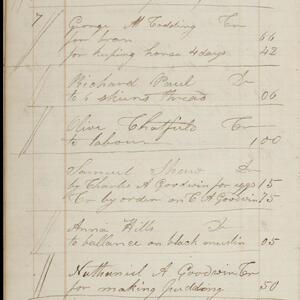 7 George M Codding Cr
for bran 66
for keeping horse 4 days 42
Richard Paul Dr
to 6 skeins thread 06
Olive Chatfield Cr
to labour 1 00
Samuel Shaw Dr
by Charles A Goodwin for eggs 15
Cr by order on C A Goodwin 15
Anna Hills Dr
to ballance on black muslin 05
Nathaniel A Goodwin Cr
for making pudding 50